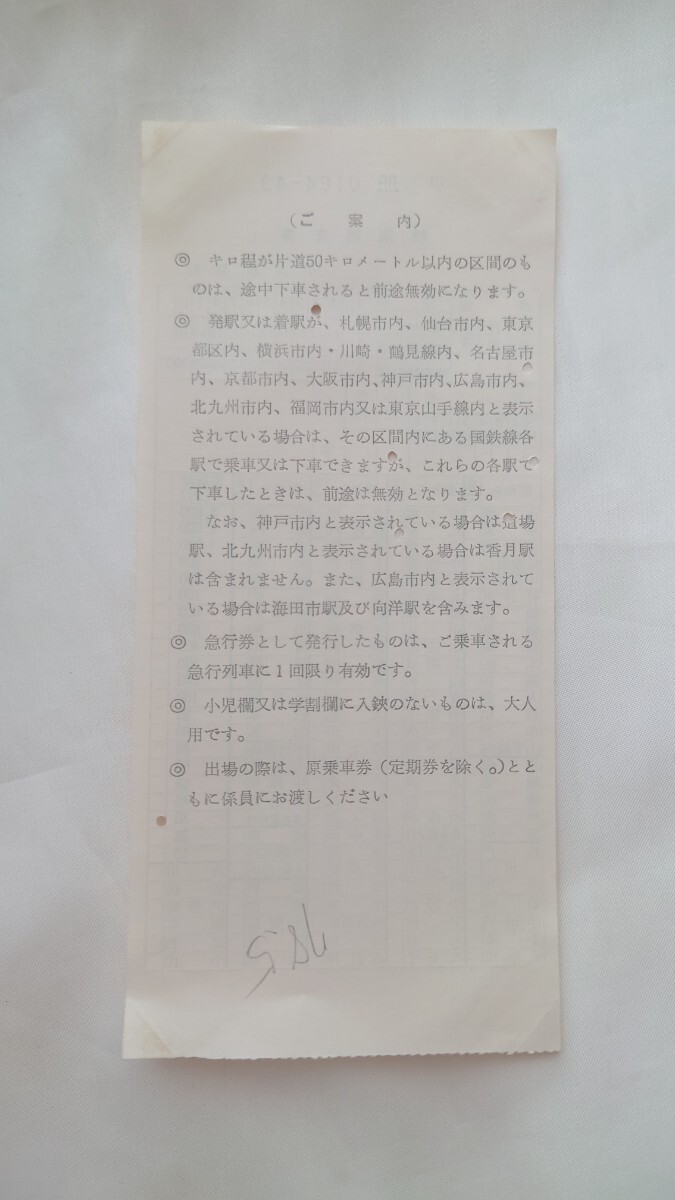 (ご 案 内)
◎ キロ程が片道50キロメートル以内の区間のも
のは、途中下車されると前途無効になります。
◎ 発駅又は着駅が、札幌市内、仙台市内、東京
都区内、横浜市内・川崎・鶴見線内、名古屋市
内、京都市内、大阪市内、神戸市内、広島市内、
北九州市内、福岡市内又は東京山手線内と表示
されている場合は、その区間内にある国鉄線各
駅で乗車又は下車できますが、これらの各駅で
下車したときは、前途は無効となります。
なお、神戸市内と表示されている場合は道場
駅、北九州市内と表示されている場合は香月駅
は含まれません。また、広島市内と表示されて
いる場合は海田市駅及び向洋駅を含みます。
◎ 急行券として発行したものは、ご乗車される
急行列車に1回限り有効です。
◎ 小児欄又は学割欄に入鋏のないものは、大人
用です。
◎ 出場の際は、原乗車券(定期券を除く。)とと
もに係員にお渡しください